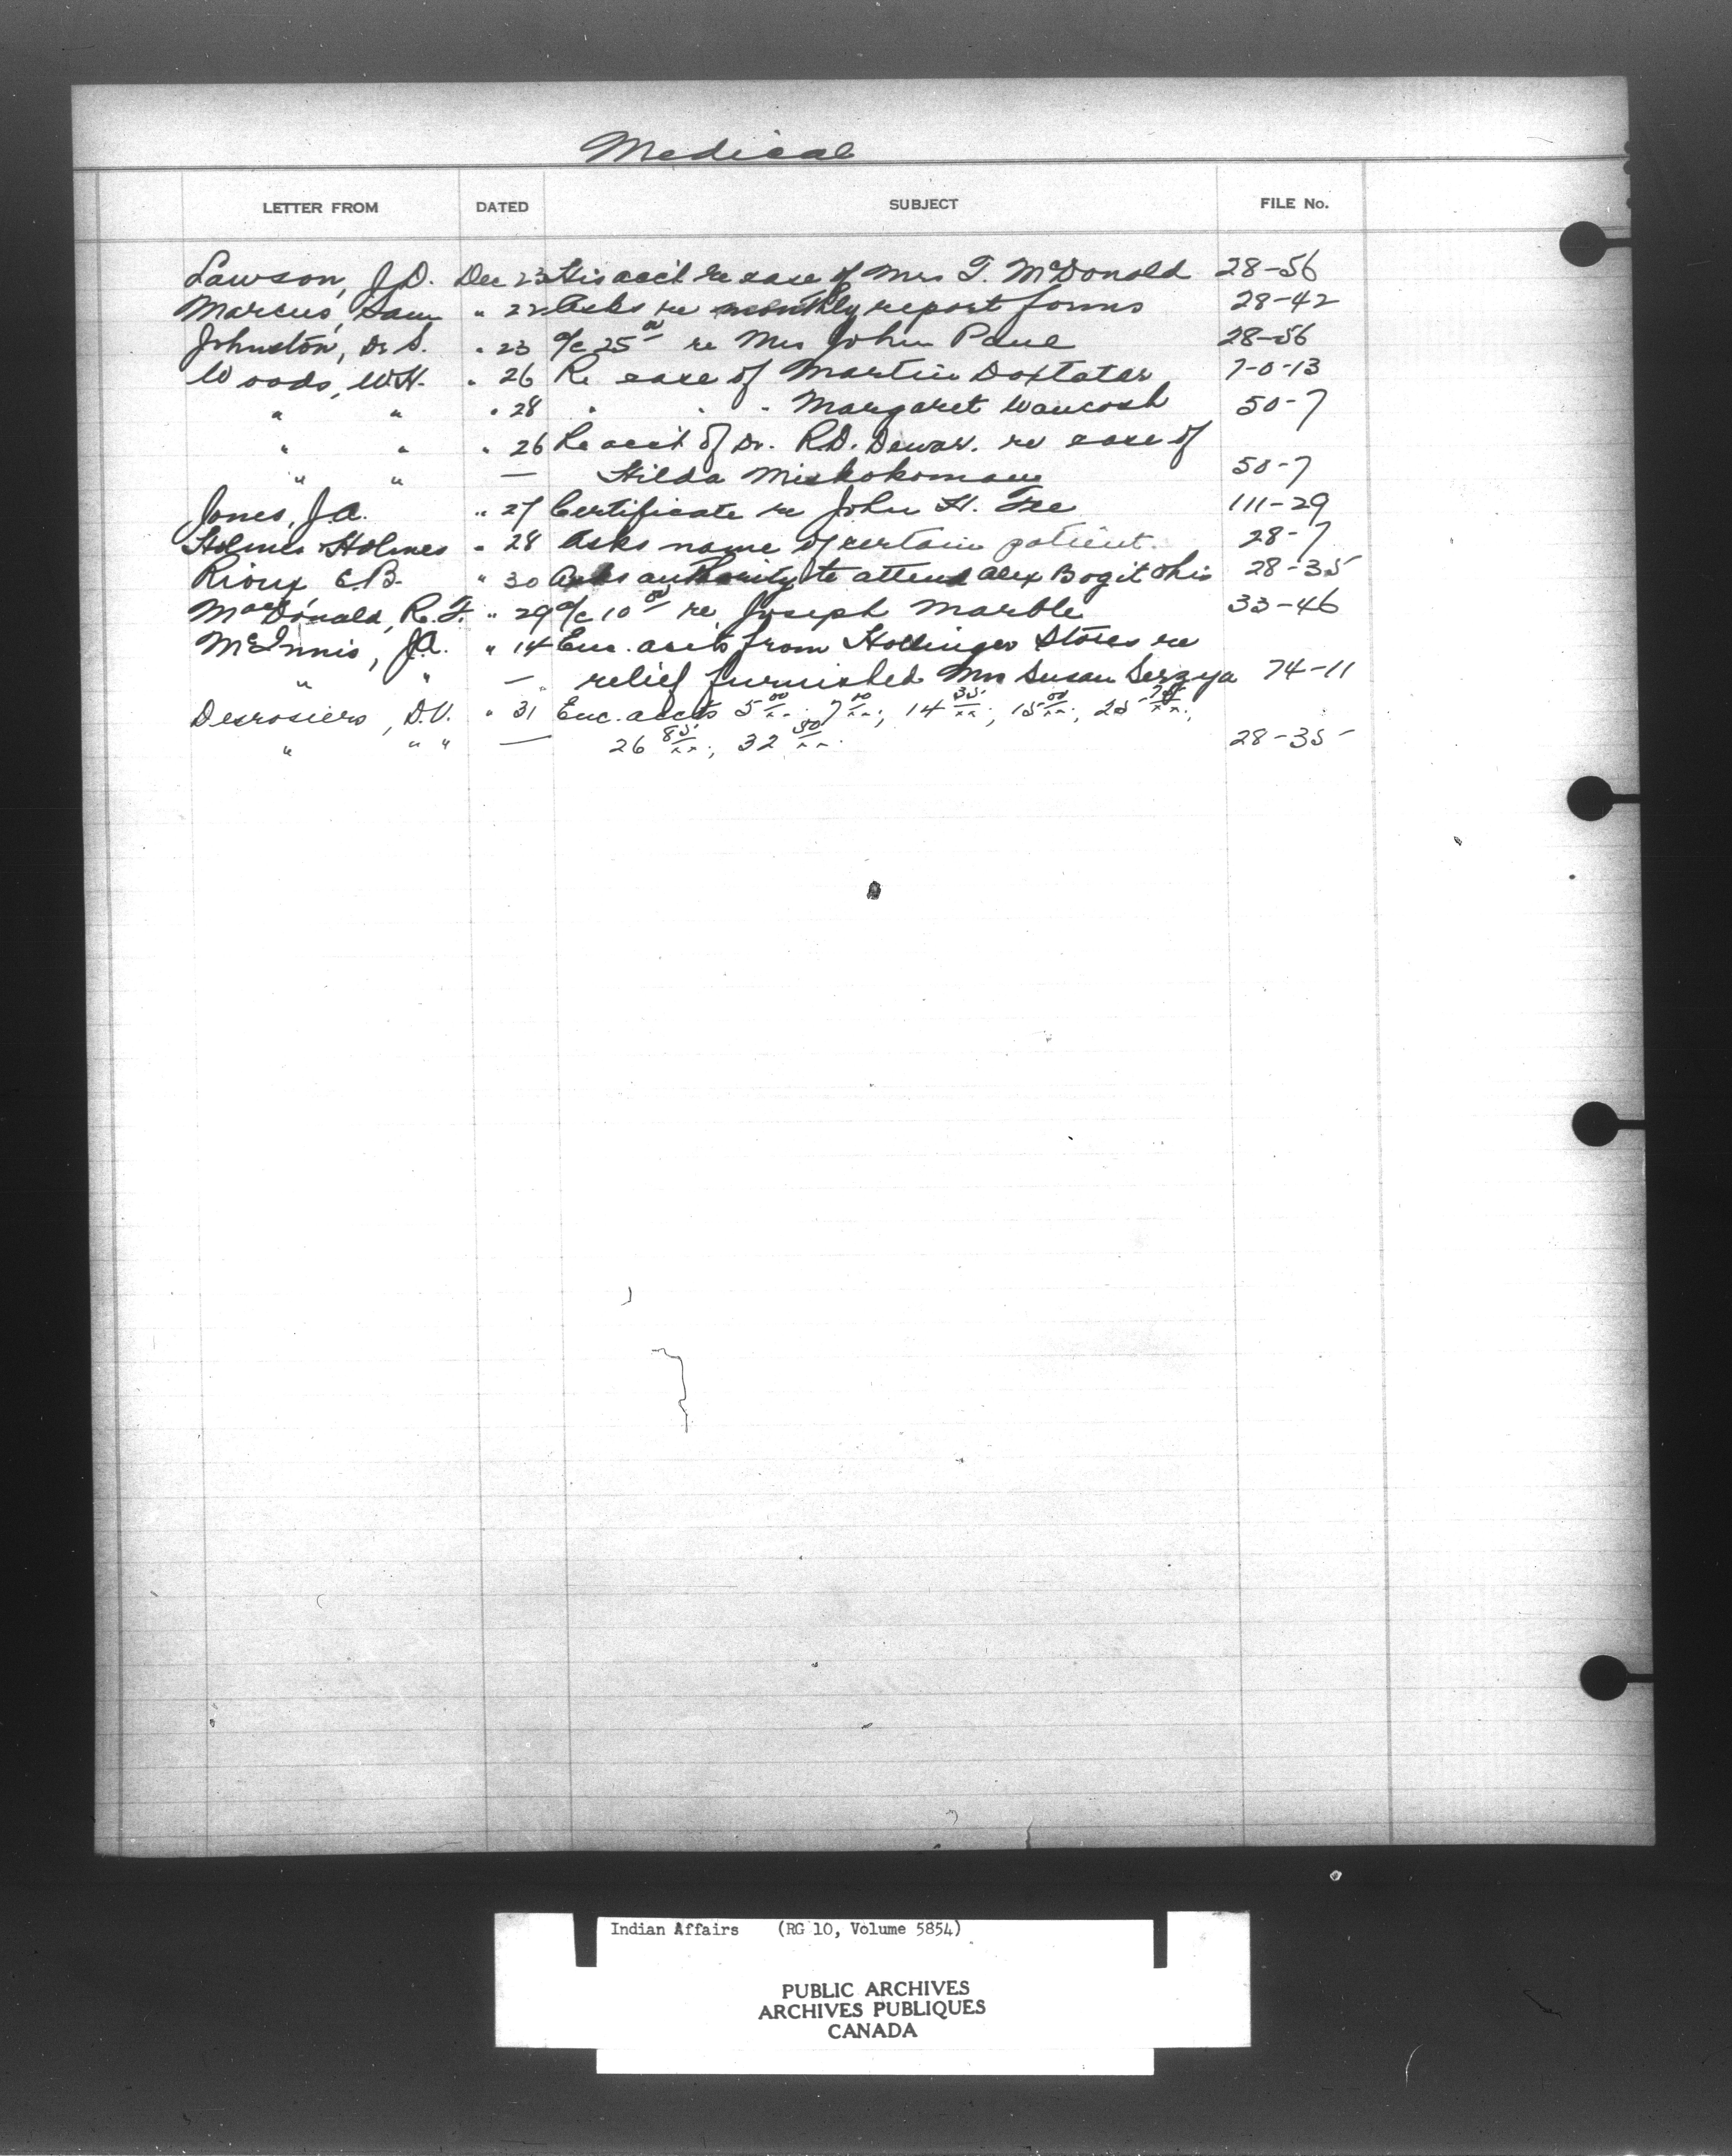 Medical
LETTER FROM DATED SUBJECT FILE No.
Lawson, J.D. Dec 23 His acc't re case of Mrs T. McDonald 28-56
Marcus, Sam " 22 Asks re monthly report forms 28-42
Johnston, Dr S. " 23 a/c 25 00 re Mrs John Paul 28-56
Woods, W.H. " 26 Re case of Martin Doxtater 7-0-13
" " " 28 " " " Margaret Waucosh 50-7
" " " 26 Re acc't of Dr. R.D. Dewar. re case of
" " — Hilda Miskokomon 50-7
Jones, J.A. " 27 Certificate re John H. 111-29
Holmes & Holmes " 28 Asks name of certain patient. 28-7
Rioux, E.B. " 30 Asks authority to attend Alex Bogit 28-35
MacDonald, R.F. " 29 a/c 10 00 re Joseph Marble 33-46
McInnis, J.A. " 14 Enc. accts from Hollinger Stores re
" " — relief furnished Mrs Susan 74-11
Desrosiers, D.V. " 31 Enc. accts 5 00/xx; 7 /xx; 14 35/xx; 15 00/xx; 25 /xx;
" " " — 26 85/xx; 32 50/xx. 28-35
Indian Affairs (RG 10, Volume 5854)
PUBLIC ARCHIVES
ARCHIVES PUBLIQUES
CANADA